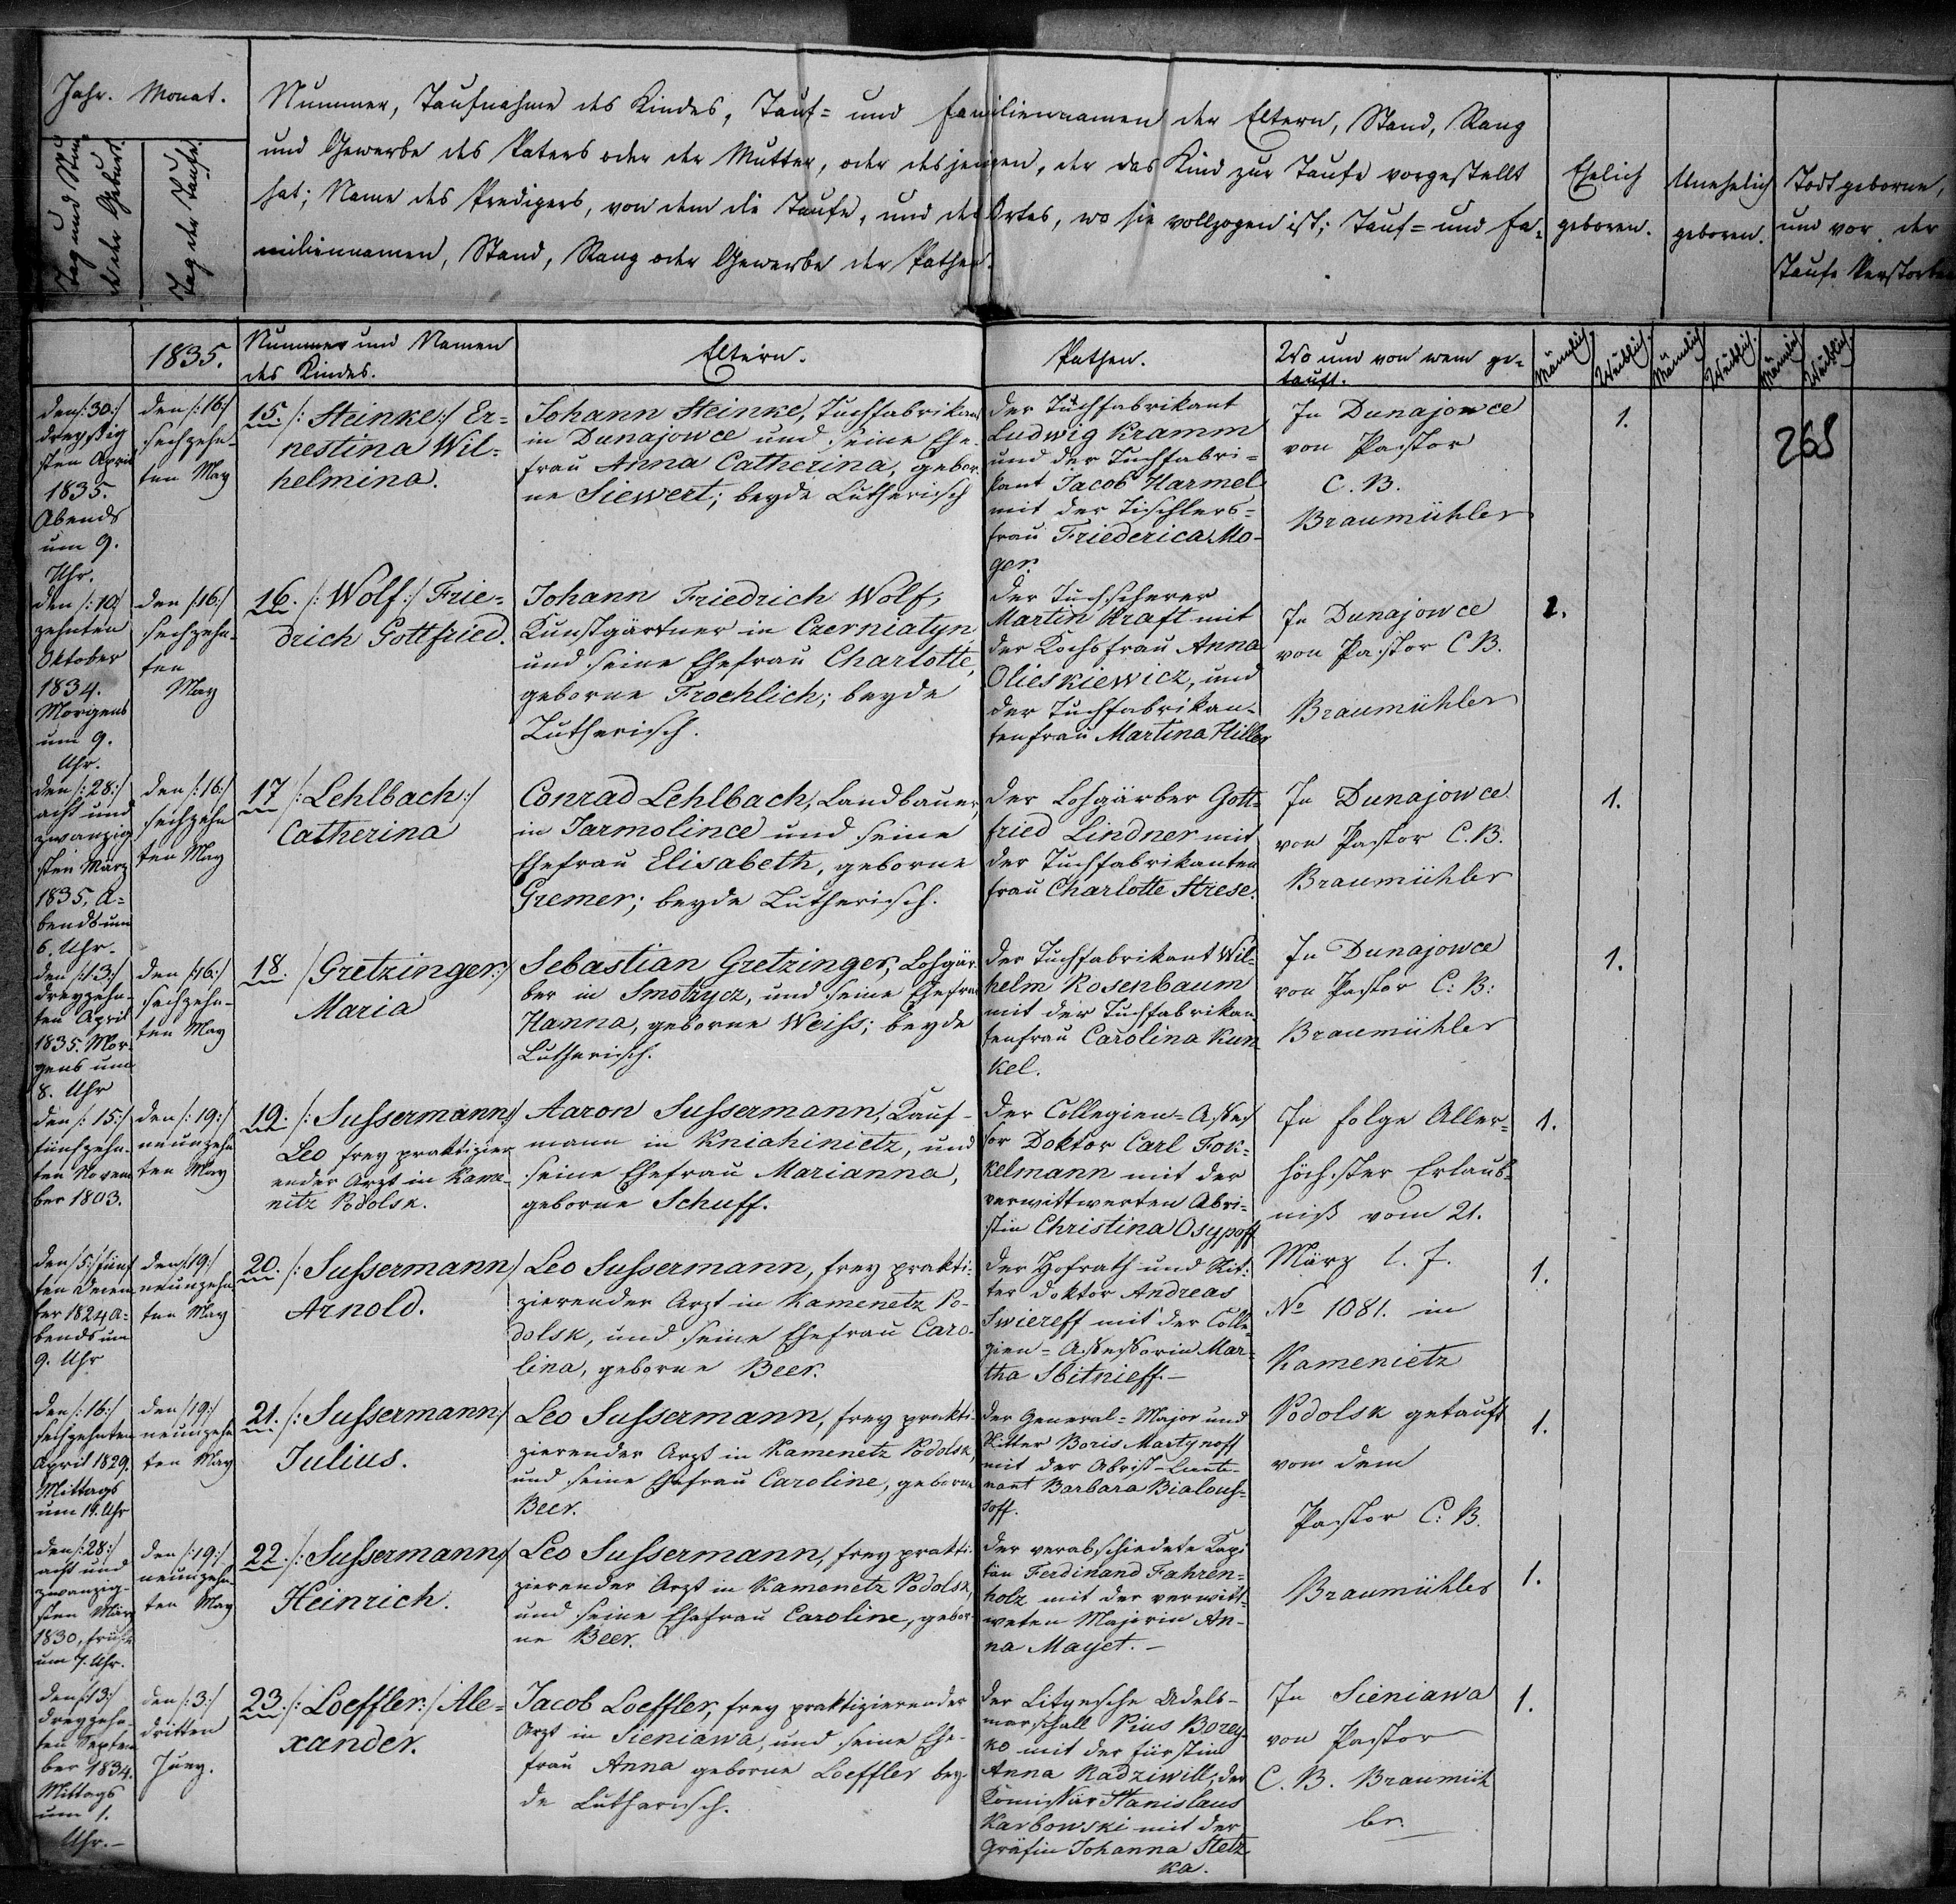 Jahr. Monat.
Tag und Stunde der Geburt.
Tag der Taufe.
Nummer, Taufnahme des Kindes, Tauf= und Familiennamen der Eltern, Stand, Rang
und Gewerbe des Vaters oder der Mutter, oder desjenigen, der das Kind zur Taufe vorgestellt
hat; Name des Predigers, von dem die Taufe, und des Ortes, wo sie vollzogen ist; Tauf= und Fa=
miliennamen, Stand, Rang oder Gewerbe der Pathen.
Ehelich
geboren.
Unehelich
geboren.
Todtgeborne,
und vor der
Taufe Verstorbene
1835.
Nummer und Namen
des Kindes.
Eltern.
Pathen.
Wo und von wem ge=
tauft.
Männlich.
Weiblich.
Männlich
Weiblich.
Männlich
Weiblich.
268
den /:30:/
dreyßig
sten April
1835.
Abends
um 9.
Uhr.
den /:16:/
sechzehn-
ten May
15. /: Steinke:/ Er=
nestina Wil=
helmina.
Johann Steinke, Tuchfabrikant
in Dunajowce und seine Ehe-
frau Anna Catherina, gebor-
ne Siewert; beyde Lutherisch
Der Tuchfabrikant
Ludwig Kramm
und der Tuchfabri=
kant Jacob Harmel
mit der Tischlers=
frau Friederica Mo-
ger.
In Dunajowce
von Pastor
C. B.
Braumühler
1.
den /:10:/
zehnten
Oktober
1834.
Morgens
um 9.
Uhr.
den /:16:/
sechzehn-
ten
May
16. /: Wolf:/ Frie=
drich Gottfried.
Johann Friedrich Wolf,
Kunstgärtner in Czerniatyn
und seine Ehefrau Charlotte,
geborne Froehlich; beyde
Lutherisch.
Der Tuchscherer
Martin Kraft mit
der Kochsfrau Anna
Olieskiewicz, und
der Tuchfabrikan-
tenfrau Martina Hiller
In Dunajowce
von Pastor C B.
Braumühler
1.
den /:28:/
acht und
zwanzig
sten März
1835, A=
bends um
6. Uhr.
den /:16:/
sechzehn
ten May
17 /: Lehlbach:/
Catherina
Conrad Lehlbach, Landbauer,
in Jarmolince und seine
Ehefrau Elisabeth, geborne
Gremer; beyde Lutherisch.
Der Lohgärber Gott=
fried Lindner mit
der Tuchfabrikanten
frau Charlotte Strese.
In Dunajowce
von Pastor C. B.
Braumühler
1.
den /:13:/
dreyzehn-
ten April
1835. Mor-
gens um
8. Uhr
den /:16:/
sechzehn-
ten May
18. /Gretzinger:/
Maria
Sebastian Gretzinger, Lohgär-
ber in Smotrycz, und seine Ehefrau
Hanna, geborne Weiss; beyde
Lutherisch.
Der Tuchfabrikant Wil=
helm Rosenbaum
mit der Tuchfabrikan
tenfrau Carolina Kun
kel.
In Dunajowce
von Pastor C: B:
Braumühler
1.
den /:15:/
fünfzehn-
ten Novem
ber 1803.
den /:19:/
neunzehn
ten May
19. /: Sussermann:/
Leo frey praktizier
ender Arzt in Kame-
nitz Podolsk.
Aaron Sussermann, Kauf-
mann in Kniahinietz, und
seine Ehefrau Marianna,
geborne Schuff.
Der Collegien=Asses
sor Doktor Carl Fok=
kelmann mit der
verwittwerten Obri=
stin Christina Osypoff
In folge Aller=
höchster Erlaub=
niß vom 21.
1.
den /:5:/ fünf
ten Decem
ber 1824 A=
bends um
9. Uhr
den /:19:/
neunzehn
ten May
20. /: Sussermann:/
Arnold.
Leo Sussermann, frey prakti=
zierender Arzt in Kamenetz Po-
dolsk, und seine Ehefrau Caro-
lina, geborne Beer.
Der Hofrath und Rit=
ter Doktor Andreas
Swiereff mit der Colle=
gien=Assessorin Mar=
tha Sbitnieff.—
März l. J.
No 1081. in
Kamenietz
1.
den /:16:/
sechzehnten
April 1829.
Mittags
um 14. Uhr
den /:19:/
neunzehn
ten May
21. /: Sussermann:/
Julius.
Leo Sussermann, frey prakti-
zierender Arzt in Kamenetz Podolsk,
und seine Ehefrau Caroline, geborne
Beer.
Der General=Major und
Ritter Boris Martynoff
mit der Obrist-Lieute-
nant Barbara Bialous=
soff.
Podolsk getauft
von dem
Pastor C: B.
1.
den /:28:/
acht und
zwanzig-
sten März
1830, frühe
um 7. Uhr.
den /:19:/
neunzehn-
ten May
22. /: Sussermann:/
Heinrich.
Leo Sussermann, frey prakti-
zierender Arzt in Kamenetz Podolsk,
und seine Ehefrau Caroline, gebor-
ne Beer.
Der verabschiedete Kapi
tän Ferdinand Fahren=
holz mit der verwitt=
weten Majorin An-
na Mayet.—
Braumühler
1.
den /:13:/
dreyzehn-
ten Septem
ber 1834.
Mittags
um 1.
Uhr.—
den /:3:/
dritten
Juny.
23. /: Loeffler:/ Ale=
xander.
Jacob Loeffler, frey praktizierender
Arzt in Sieniawa, und seine Ehe-
frau Anna geborne Loeffler bey-
de Lutherisch.
Der Litynsche Adels-
marschall Pius Borey-
ko mit der Fürstin
Anna Radziwill, der
Komissär Stanislaus
Karbowski mit der
Gräfin Johanna Stetz
ka.
In Sieniawa
von Pastor
C. B. Braumüh
ler.
1.